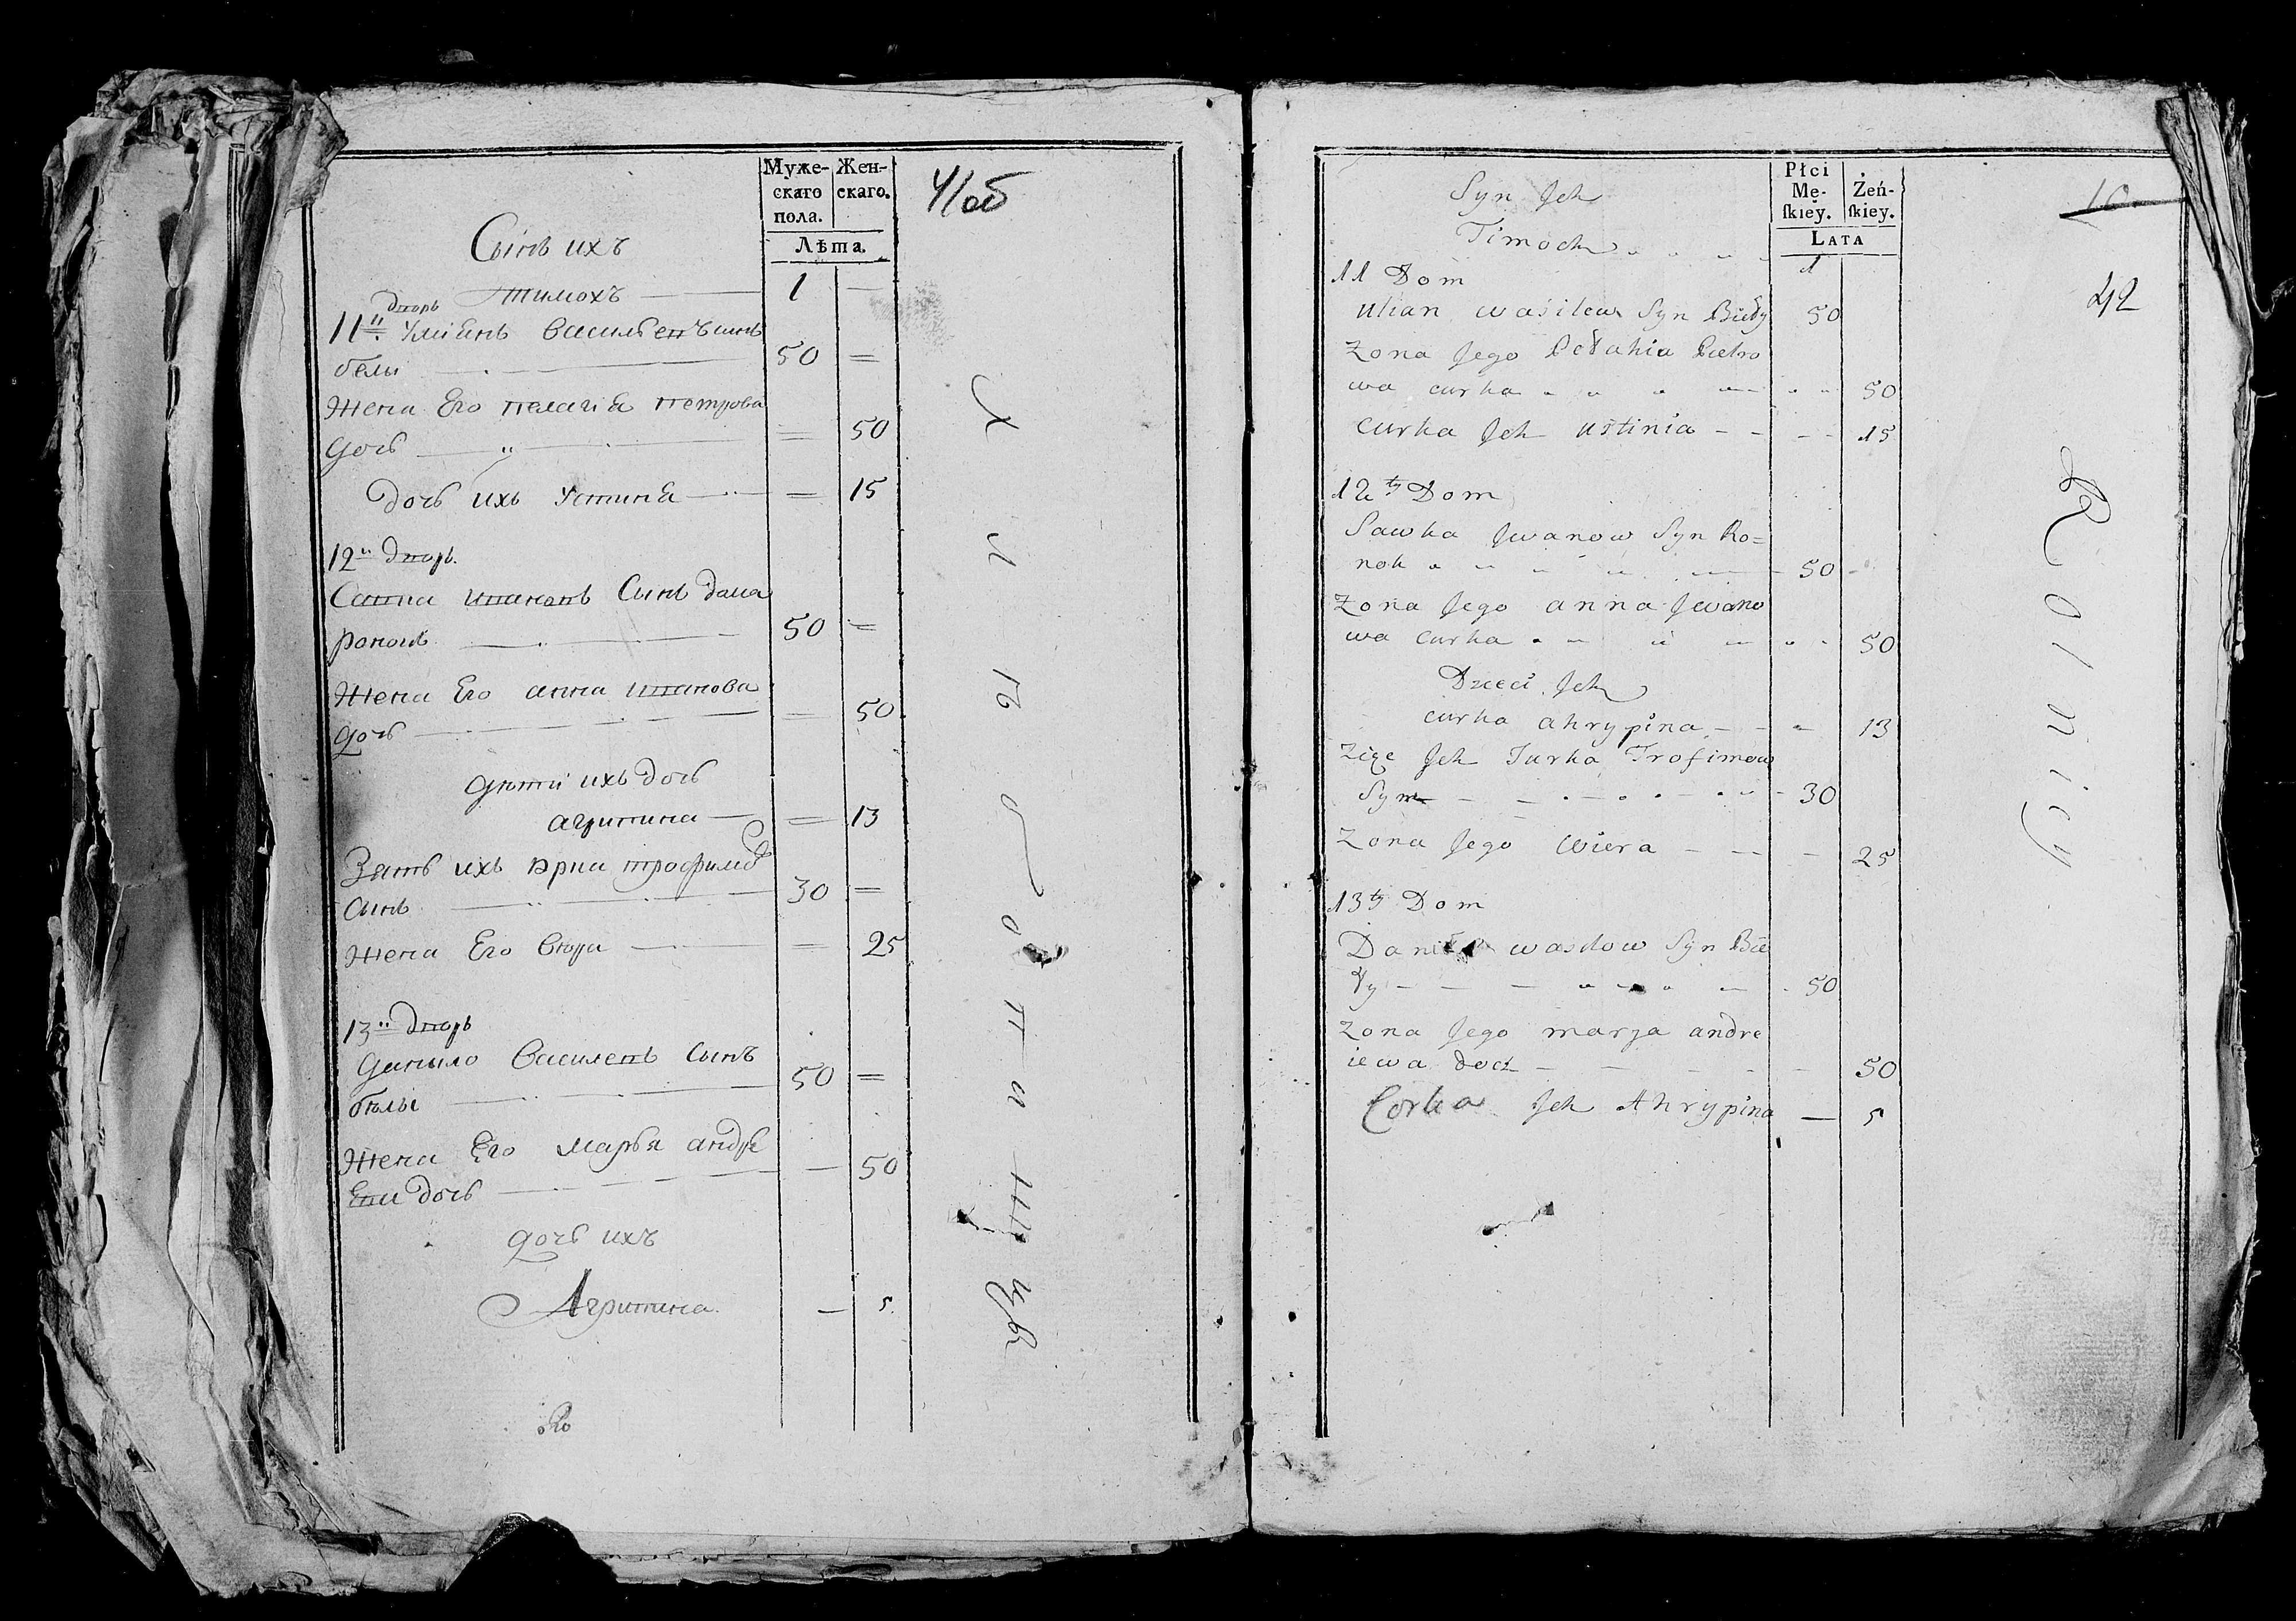 Муже-
скаго
пола.
Жен-
скаго.
Лѣта.
41об
Сынъ ихъ
Тимохъ 1
11й дворъ Улiянъ Васильевъ сынъ
белы 50
Жена Его Пелагiя Петрова
дочь 50
Дочь ихъ Устиня 15
12й дворъ.
Савка Ивановъ Сынъ
50
Жена Его анна Иванова
дочь 50
дѣти ихъ дочь
агрипина 13
Зять ихъ Юрка трофимов
сынъ 30
Жена Его Вѣра 25
13й дворъ
Данило Василевъ Сынъ
бѣлы 50
Жена Его Марья андре
ева дочь 50
дочь ихъ
Агрипина. 5.
Хлѣбопашцы
Płci
Mę-
ſkiey.
Żeń-
ſkiey.
LATA
10
42
Syn Jch
Timoch 1
11 Dom
Ulian wasilew Syn Biały 50
Zona Jego Pełahia Pietro
wa curka 50
curka Jch ustinia 15
12ty Dom
Sawka Jwanow Syn Ko=
nok 50
Zona Jego anna Jwano
wa curka 50
Dzieci Jch
curka ahrypina 13
Zięc Jch Jurka Trofimow
Syn 30
Zona Jego Wiera 25
13ty Dom
Daniło wasilow Syn Bie
ły 50
Zona Jego marja andre
iewa docz 50
Corka Jch Ahrypina 5
Rolnicy